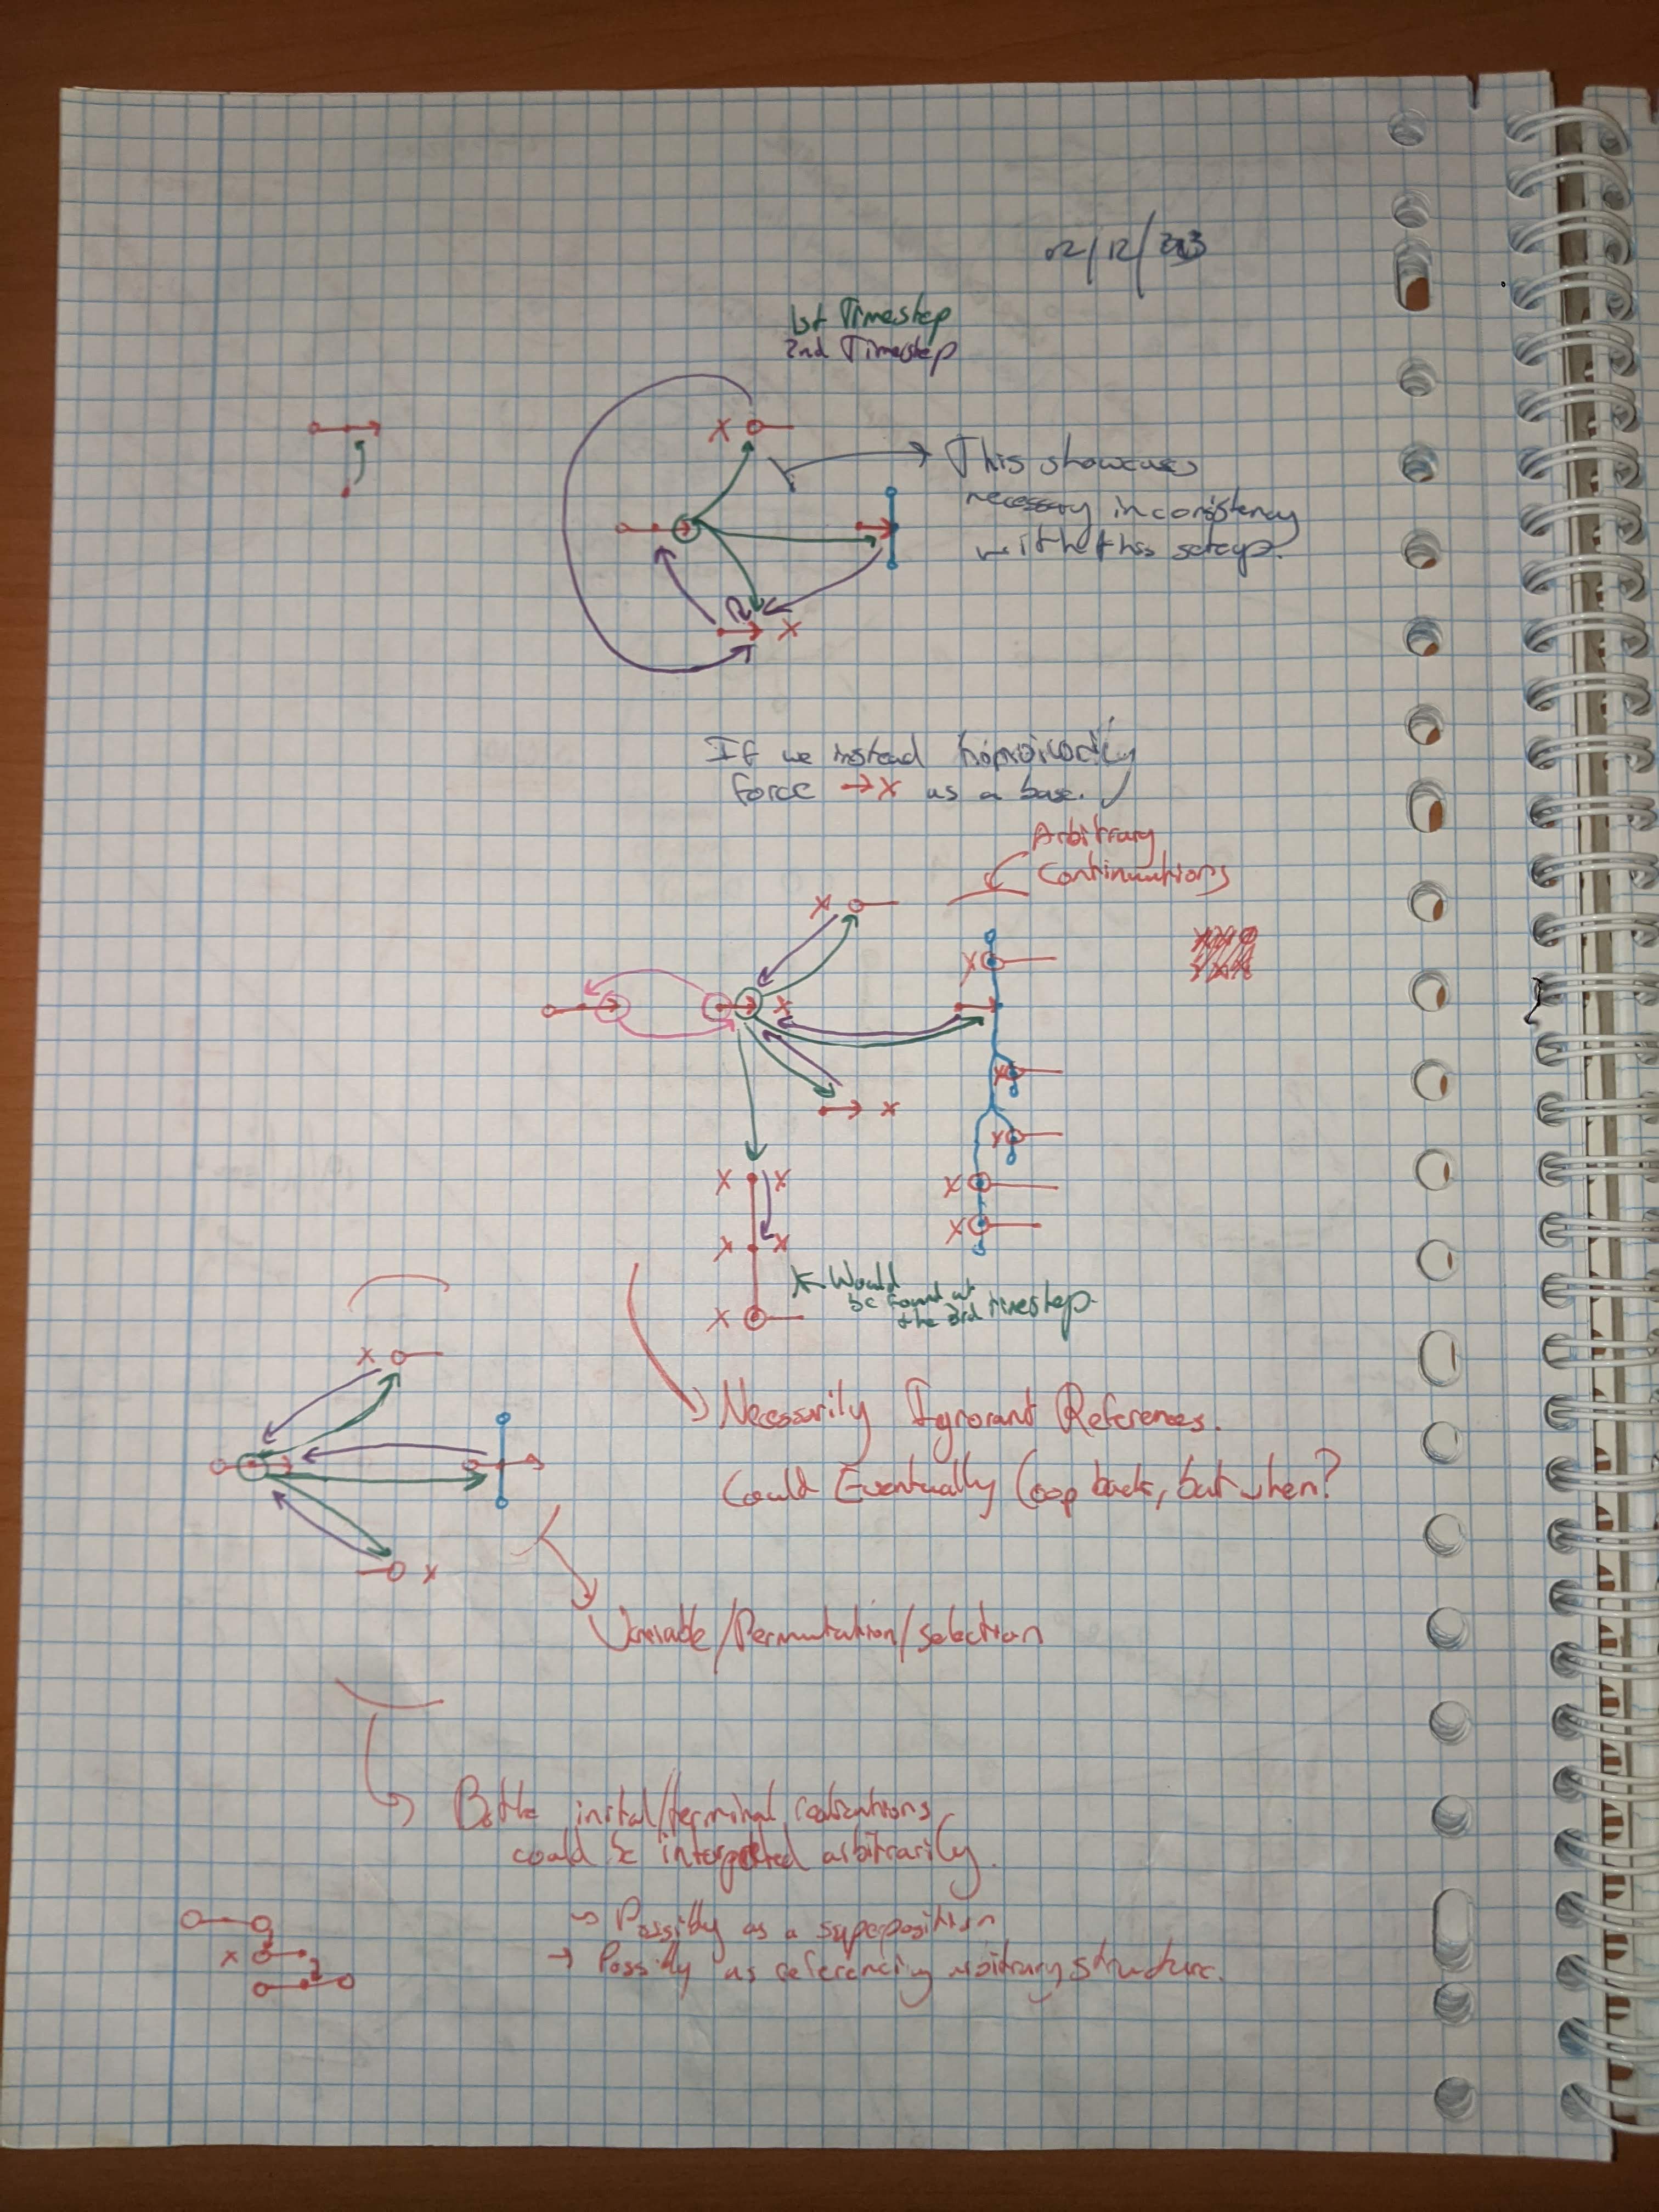 02/12/2023
1st Timestep
2nd Timestep
X
This showcases
necessary inconsistency
with this setup.
X
If we instead homoiconicly
force → X as a base.
Arbitrary
Continuations
X
X
X
X
X
X
X X
X
X
X X
* Would
be found at
the 3rd timestep
X
X
Necessarily Ignorant References.
Could Eventually Loop back, but when?
X
Variable/Permutation/Selection
Both initial/terminal realizations
could be interpreted arbitrarily.
→ Possibly as a superposition
X
→ Possibly as referencing arbitrary structure.